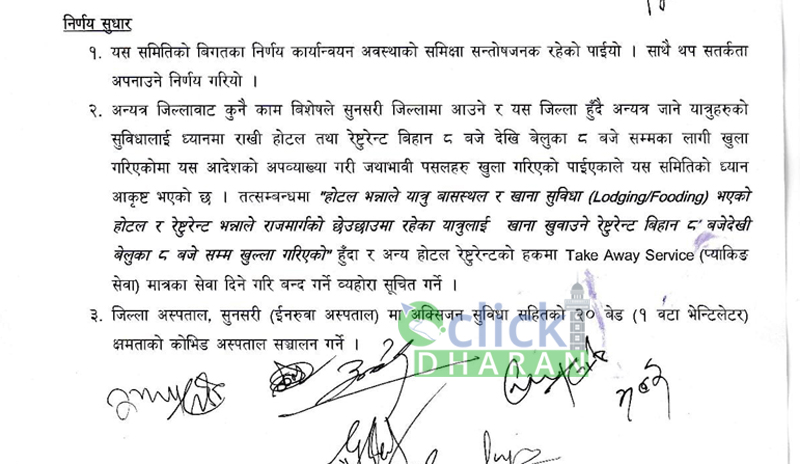 निर्णय सुधार
१. यस समितिको बिगतका निर्णय कार्यान्वयन अवस्थाको समिक्षा सन्तोषजनक रहेको पाईयो । साथै थप सतर्कता
अपनाउने निर्णय गरियो ।
२. अन्यत्र जिल्लावाट कुनै काम बिशेषले सुनसरी जिल्लामा आउने र यस जिल्ला हुँदै अन्यत्र जाने यात्रुहरुको
सुविधालाई ध्यानमा राखी होटल तथा रेष्टुरेन्ट बिहान ८ बजे देखि बेलुका ८ बजे सम्मका लागी खुला
गरिएकोमा यस आदेशको अपव्याख्या गरी जथाभावी पसलहरु खुला गरिएको पाईएकाले यस समितिको ध्यान
आकृष्ट भएको छ । तत्सम्बन्धमा "होटल भन्नाले यात्रु बासस्थल र खाना सुविधा (Lodging/Fooding) भएको
होटल र रेष्टुरेन्ट भन्नाले राजमार्गको छेउछाउमा रहेका यात्रुलाई खाना खुवाउने रेष्टुरेन्ट बिहान ८ बजेदेखी
बेलुका ८ बजे सम्म खुल्ला गरिएको" हुँदा र अन्य होटल रेष्टुरेन्टको हकमा Take Away Service (प्याकिङ
सेवा) मात्रका सेवा दिने गरि बन्द गर्ने व्यहोरा सूचित गर्ने ।
३. जिल्ला अस्पताल, सुनसरी (ईनरुवा अस्पताल) मा अक्सिजन सुविधा सहितको २० बेड (१ वटा भेन्टिलेटर)
क्षमताको कोभिड अस्पताल सञ्चालन गर्ने ।
click
DHARAN